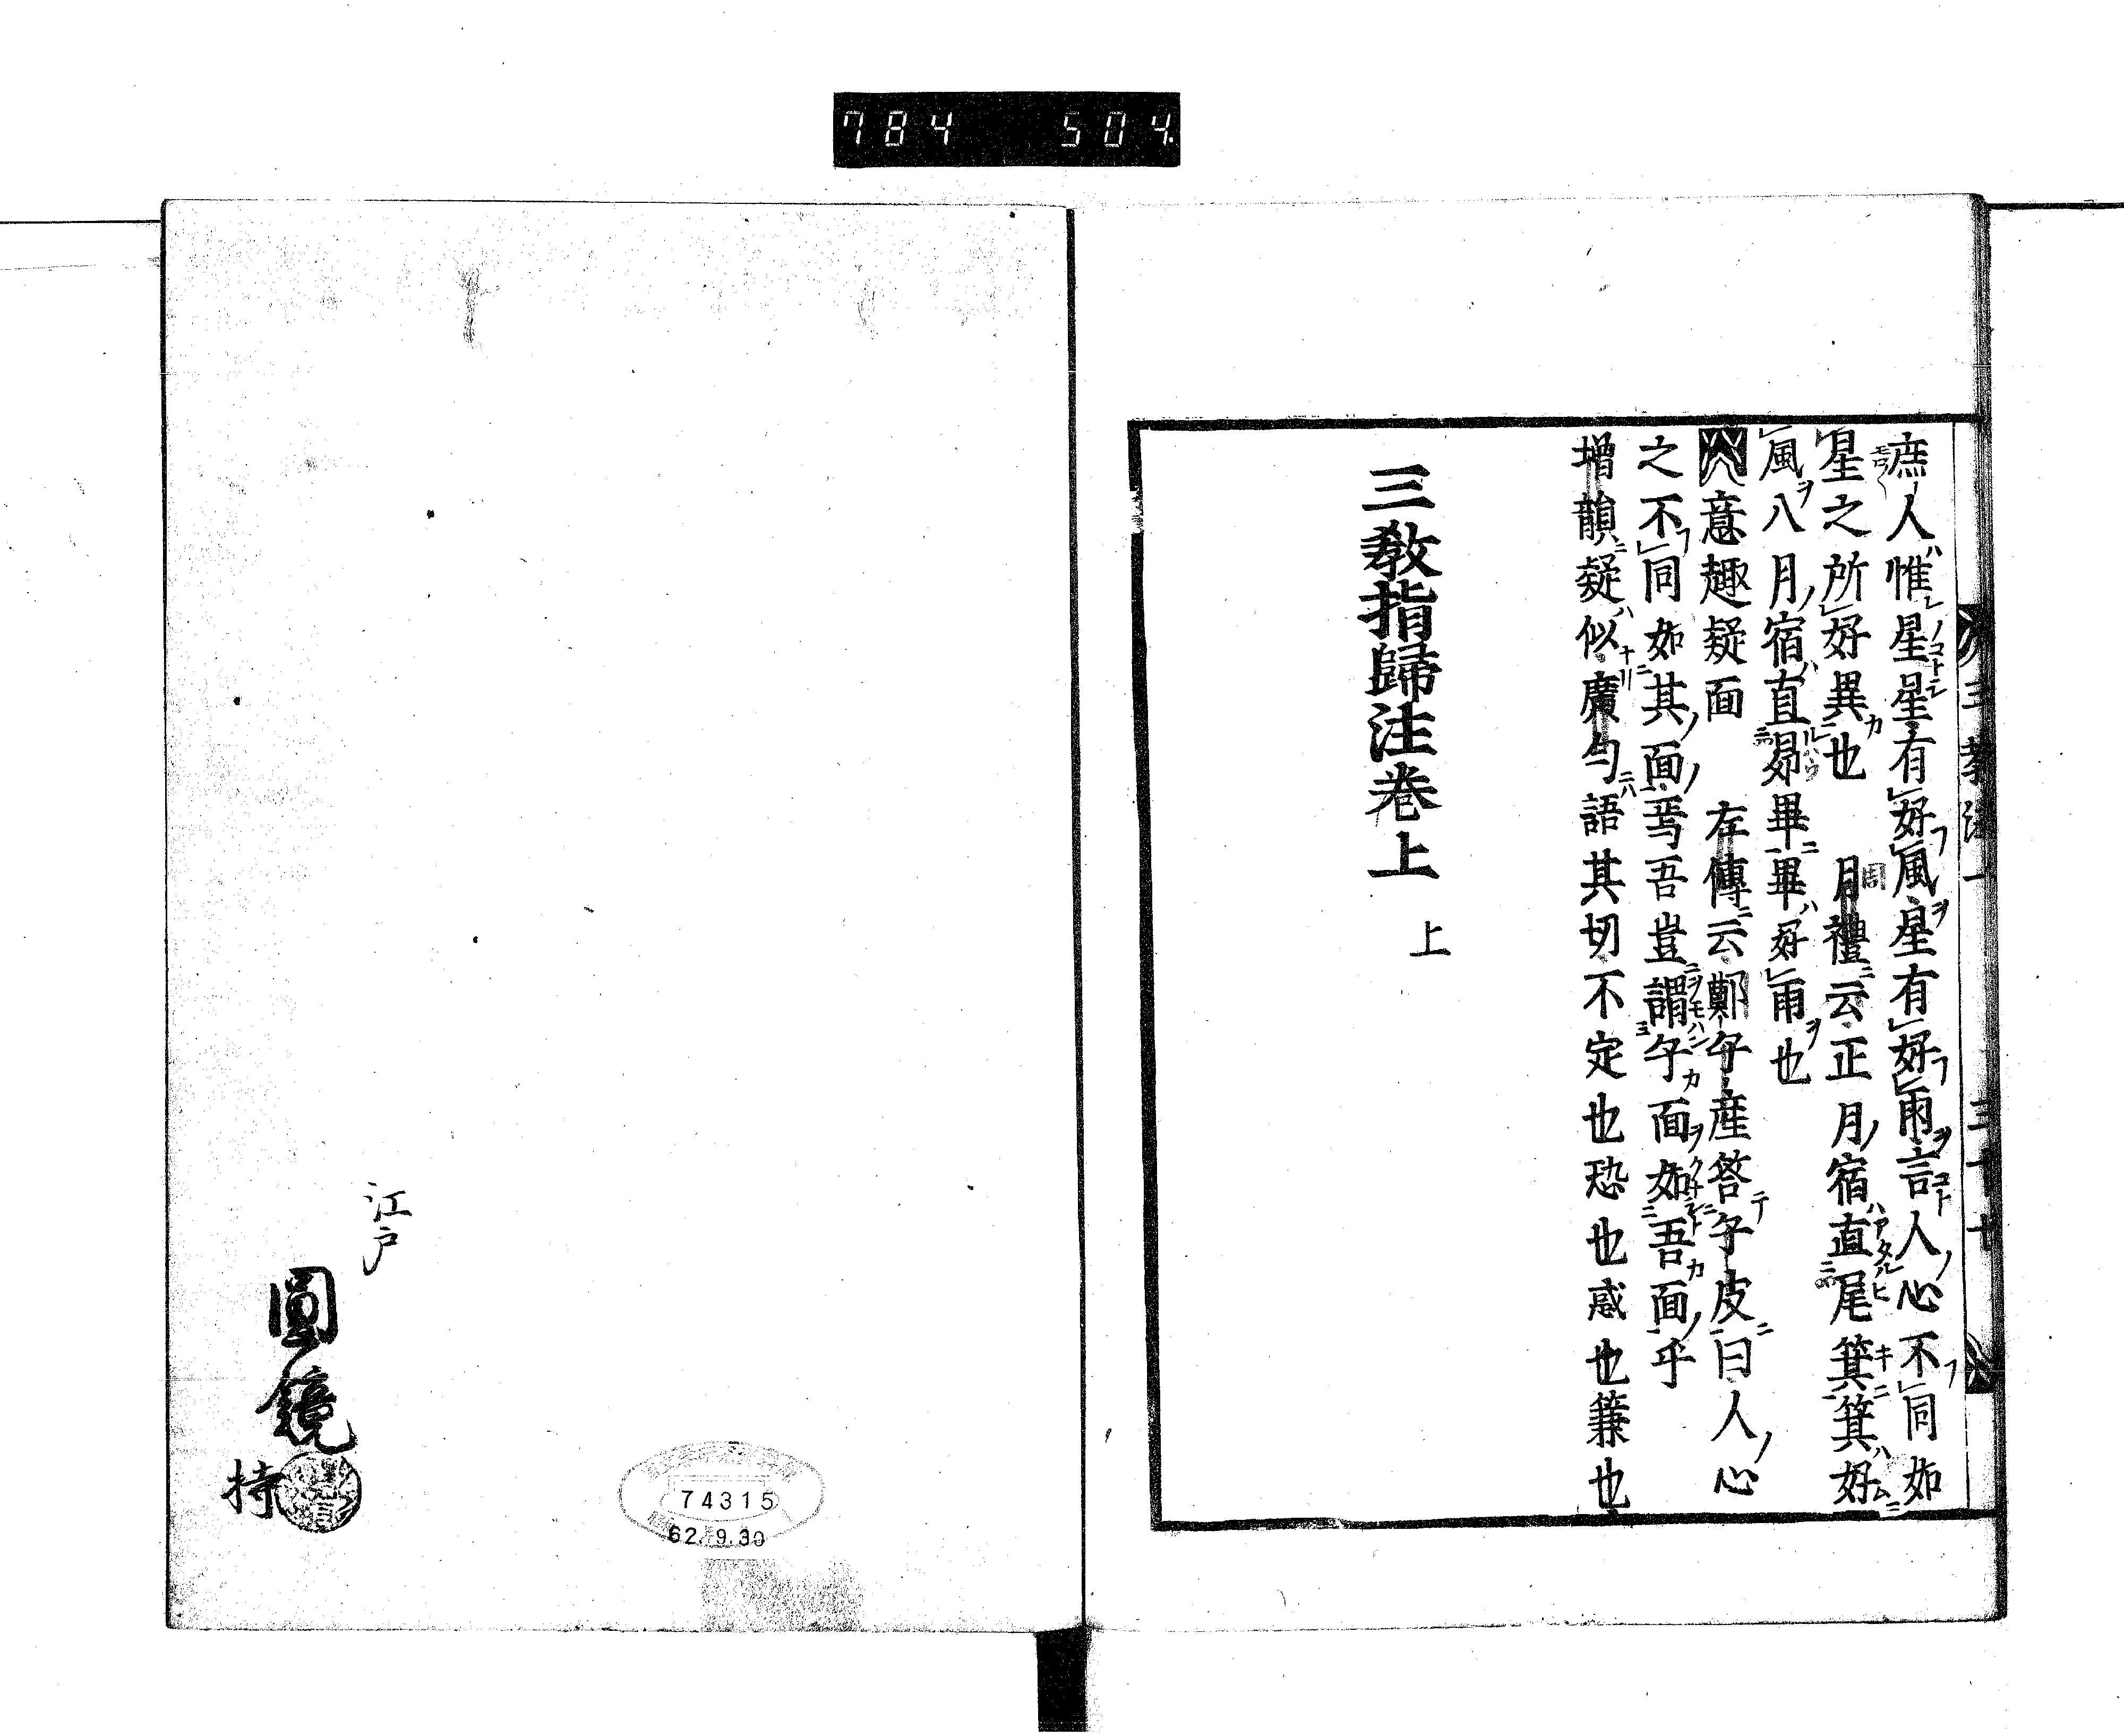 784 504
三教注一 三十七
庶人惟星星有好風星有好雨言人心不同如
星之所好異也 月禮云正月宿直尾箕箕好
風八月宿直昴畢畢好雨也
意趣疑面 左傳云鄭子産答子皮曰人心
之不同如其面焉吾豈謂子面如吾面乎
増韻疑似廣勻語其切不定也恐也惑也蒹也
三教指歸注巻上 上
江戸
圓鏡
持
74315
62.9.30